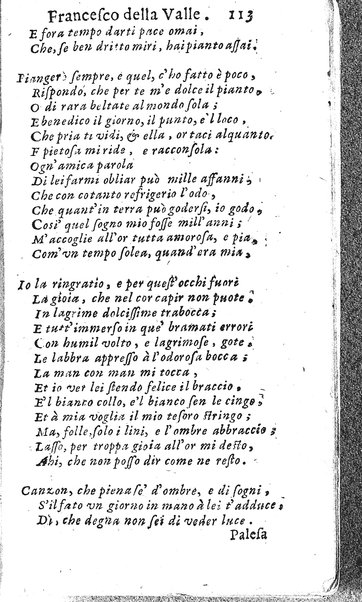 Francesco della Valle. 113
E fora tempo darti pace omai,
Che, se ben dritto miri, hai pianto assai.
Piangerò sempre, e quel, c'ho fatto è poco,
Rispondo, che per te m'è dolce il pianto,
O di rara beltate al mondo sola;
E benedico il giorno, il punto, e'l loco,
Che pria ti vidi, & ella, or taci alquanto,
E pietosa mi ride, e racconsola:
Ogn'amica parola
Di lei farmi obliar può mille affanni;
Che con cotanto refrigerio l'odo,
Che quant'in terra può godersi, io godo,
Cosi quel sogno mio fosse mill'anni;
M'accoglie all'or tutta amorosa, e pia,
Com'un tempo solea, quand'era mia,
Io la ringratio, e per quest'occhi fuori
La gioia, che nel cor capir non puote
In lagrime dolcissime trabocca;
E tutt'immerso in que' bramati errori
Con humil volto, e lagrimose, gote,
Le labbra appresso à l'odorosa bocca;
La man con man mi tocca,
Et io ver lei stendo felice il braccio,
E'l bianco collo, e'l bianco sen le cinge,
Et à mia voglia il mio tesoro stringo;
Ma, folle, solo i lini, e l'ombre abbraccio;
Lasso, per troppa gioia all'or mi desto,
Ahi, che non posso dir come ne resto.
Canzon, che piena se' d'ombre, e di sogni,
S'il fato un giorno in mano à lei t'adduce,
Dì, che degna non sei di veder luce.
Palesa